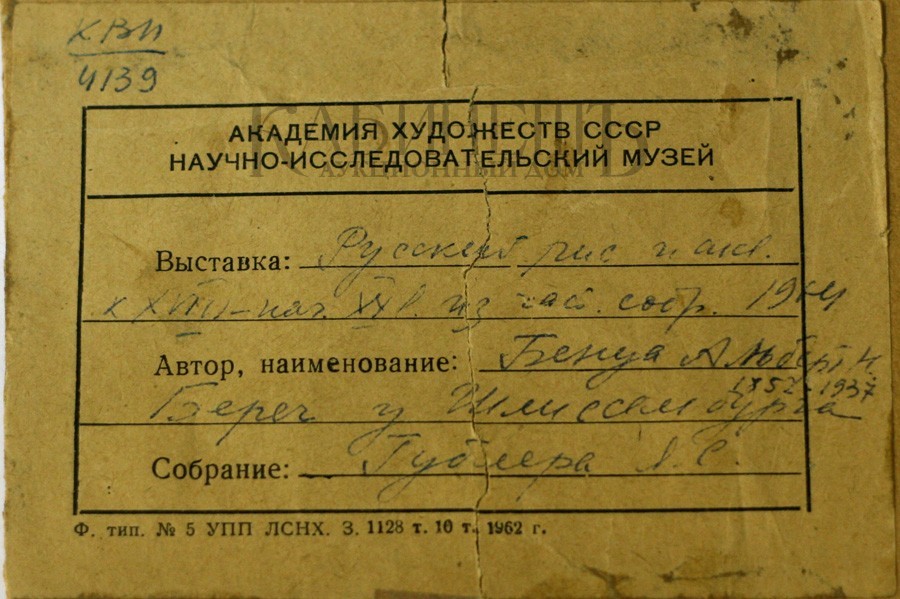 КВП
4139
КАБИНЕТЪ
АУКЦИОННЫЙ ДОМ
АКАДЕМИЯ ХУДОЖЕСТВ СССР
НАУЧНО-ИССЛЕДОВАТЕЛЬСКИЙ МУЗЕЙ
Выставка: Русский рис. и акв.
к. XVIII - нач. XX в. из час. собр.
Автор, наименование: Бенуа Альберт Н.
1852-1937
Берег у Шлиссельбурга
Собрание: Гублера Я. С.
Ф. тип. № 5 УПП ЛСНХ. З. 1128 т. 10 т. 1962 г.